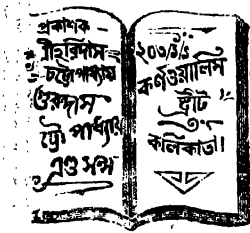 প্রকাশক
শ্রীহরিদাস
চট্টোপাধ্যায়
গুরুদাস
চট্টোপাধ্যায়
এণ্ড সন্স
২০৩/১/১
কর্ণওয়ালিস
ষ্ট্রীট
কলিকাতা।